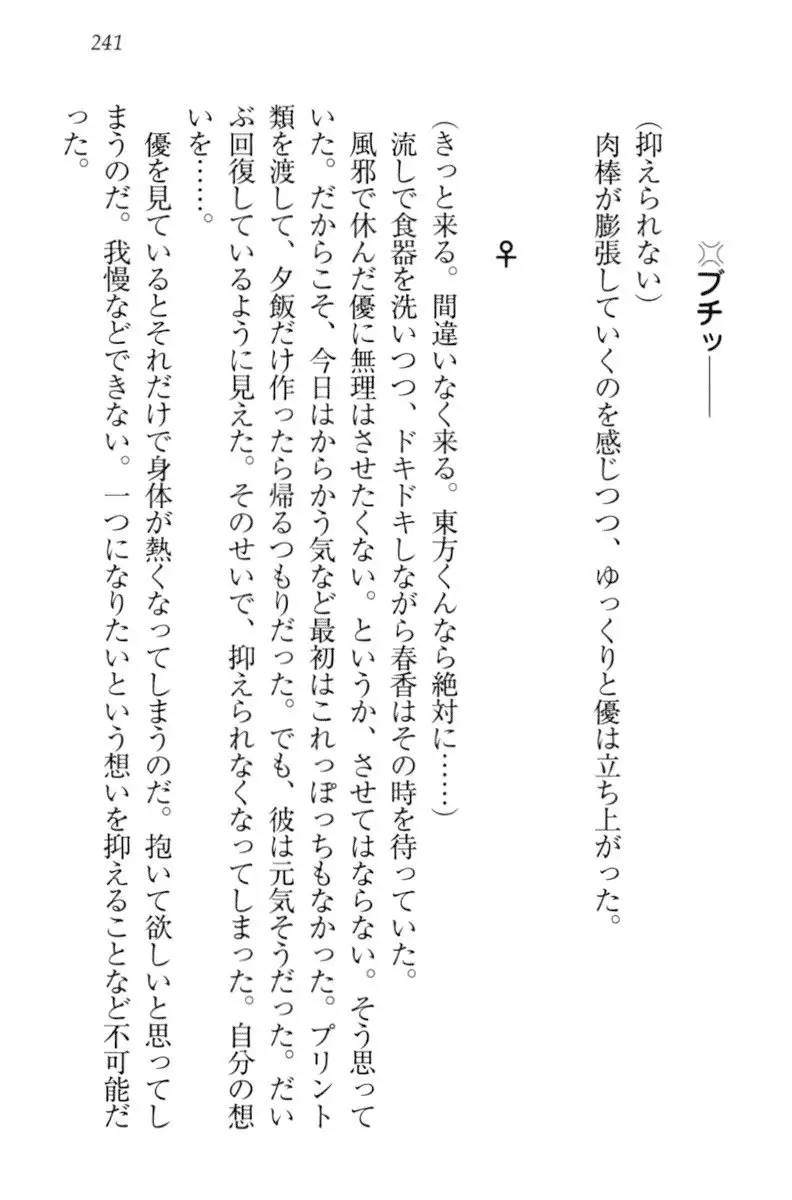 241
ブチッ――
(抑えられない)
肉棒が膨張していくのを感じつつ、ゆっくりと優は立ち上がった。
♀
(きっと来る。間違いなく来る。東方くんなら絶対に……)
流しで食器を洗いつつ、ドキドキしながら春香はその時を待っていた。
風邪で休んだ優に無理はさせたくない。というか、させてはならない。そう思って
いた。だからこそ、今日はからかう気など最初はこれっぽっちもなかった。プリント
類を渡して、夕飯だけ作ったら帰るつもりだった。でも、彼は元気そうだった。だい
ぶ回復しているように見えた。そのせいで、抑えられなくなってしまった。自分の想
いを……。
優を見ているとそれだけで身体が熱くなってしまうのだ。抱いて欲しいと思ってし
まうのだ。我慢などできない。一つになりたいという想いを抑えることなど不可能だ
った。